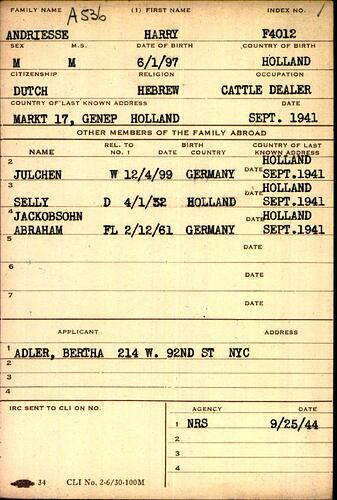 A536
FAMILY NAME (1) FIRST NAME INDEX NO. 1
ANDRIESSE HARRY F4012
SEX M.S. DATE OF BIRTH COUNTRY OF BIRTH
M M 6/1/97 HOLLAND
CITIZENSHIP RELIGION OCCUPATION
DUTCH HEBREW CATTLE DEALER
COUNTRY OF LAST KNOWN ADDRESS DATE
MARKT 17, GENEP HOLLAND SEPT. 1941
OTHER MEMBERS OF THE FAMILY ABROAD
NAME REL. TO NO. 1 DATE BIRTH COUNTRY COUNTRY OF LAST KNOWN ADDRESS
2 HOLLAND
JULCHEN W 12/4/99 GERMANY DATE SEPT.1941
3 HOLLAND
SELLY D 4/1/32 HOLLAND DATE SEPT.1941
4 JACKOBSOHN HOLLAND
ABRAHAM FL 2/12/61 GERMANY DATE SEPT.1941
5 DATE
6 DATE
7 DATE
APPLICANT ADDRESS
1 ADLER, BERTHA 214 W. 92ND ST NYC
2
3
4
IRC SENT TO CLI ON NO. AGENCY DATE
1 NRS 9/25/44
2
3
4
34 CLI No. 2-6/30-100M